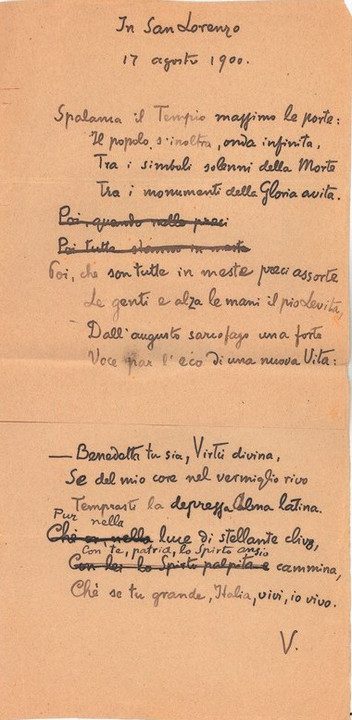 In San Lorenzo
17 agosto 1900.
Spalanca il Tempio massimo le porte:
Il popolo s'inoltra, onda infinita,
Tra i simboli solenni della Morte
Tra i monumenti della Gloria avita.
Poi, quando nelle preci
Poi tutte stanno in meste
Poi, ché son tutte in meste preci assorte
Le genti e alza le mani il pio Levita,
Dall'augusto sarcofago una forte
Voce par l'eco di una nuova Vita:
— Benedetta tu sia, Virtù divina,
Se del mio core nel vermiglio rivo
Temprasti la depressa Alma latina.
Pur nella
Ché or nella luce di stellante clivo,
Con te, patria, lo Spirto ansio
Con lei lo Spirto palpita e cammina,
Ché se tu grande, Italia, vivi, io vivo.
V.